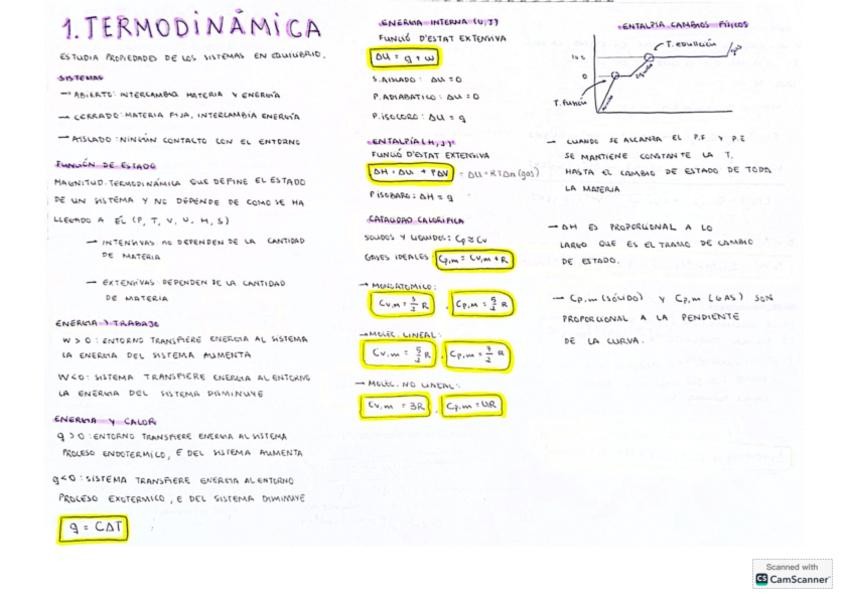 1. TERMODINÁMICA
ESTUDIA PROPIEDADES DE LOS SISTEMAS EN EQUILIBRIO.
SISTEMAS
→ ABIERTO: INTERCAMBIA MATERIA Y ENERGÍA
→ CERRADO: MATERIA FIJA, INTERCAMBIA ENERGÍA
→ AISLADO: NINGÚN CONTACTO CON EL ENTORNO
FUNCIÓN DE ESTADO
MAGNITUD TERMODINÁMICA QUE DEFINE EL ESTADO
DE UN SISTEMA Y NO DEPENDE DE COMO SE HA
LLEGADO A ÉL (P, T, V, U, H, S)
→ INTENSIVAS NO DEPENDEN DE LA CANTIDAD
DE MATERIA
→ EXTENSIVAS DEPENDEN DE LA CANTIDAD
DE MATERIA
ENERGÍA Y TRABAJO
W > 0: ENTORNO TRANSFIERE ENERGÍA AL SISTEMA
LA ENERGÍA DEL SISTEMA AUMENTA
W<0: SISTEMA TRANSFIERE ENERGÍA AL ENTORNO
LA ENERGÍA DEL SISTEMA DISMINUYE
ENERGÍA Y CALOR
q > 0: ENTORNO TRANSFIERE ENERGÍA AL SISTEMA
PROCESO ENDOTERMICO, E DEL SISTEMA AUMENTA
q<0: SISTEMA TRANSFIERE ENERGÍA AL ENTORNO
PROCESO EXOTERMICO, E DEL SISTEMA DISMINUYE
q = CΔT
ENERGIA INTERNA (U, J)
FUNCIÓ D'ESTAT EXTENSIVA
ΔU = q + w
S. AISLADO: ΔU = 0
P. ADIABATICO: ΔU = 0
P. ISOCORO: ΔU = q
ENTALPÍA (H, J)
FUNCIÓ D'ESTAT EXTENSIVA
ΔH = ΔU + PΔV = ΔU + RTΔn (gas)
P ISOBARO: ΔH = q
CAPACIDAD CALORIFICA
SOLIDOS Y LIQUIDOS: Cp ≈ Cv
GASES IDEALES: Cp,m = Cv,m + R
→ MONOATOMICO:
Cv,m = 3/2 R , Cp,m = 5/2 R
→ MOLEC. LINEAL:
Cv,m = 5/2 R , Cp,m = 7/2 R
→ MOLEC. NO LINEAL:
Cv,m = 3R , Cp,m = 4R
ENTALPIA CAMBIOS FÍSICOS
T. ebullición
100
0
T. fusión
→ CUANDO SE ALCANZA EL P.F Y P.E
SE MANTIENE CONSTANTE LA T,
HASTA EL CAMBIO DE ESTADO DE TODA
LA MATERIA
→ ΔH ES PROPORCIONAL A LO
LARGO QUE ES EL TRAMO DE CAMBIO
DE ESTADO.
→ Cp,m (SÓLIDO) Y Cp,m (GAS) SON
PROPORCIONAL A LA PENDIENTE
DE LA CURVA.
Scanned with
CS CamScanner